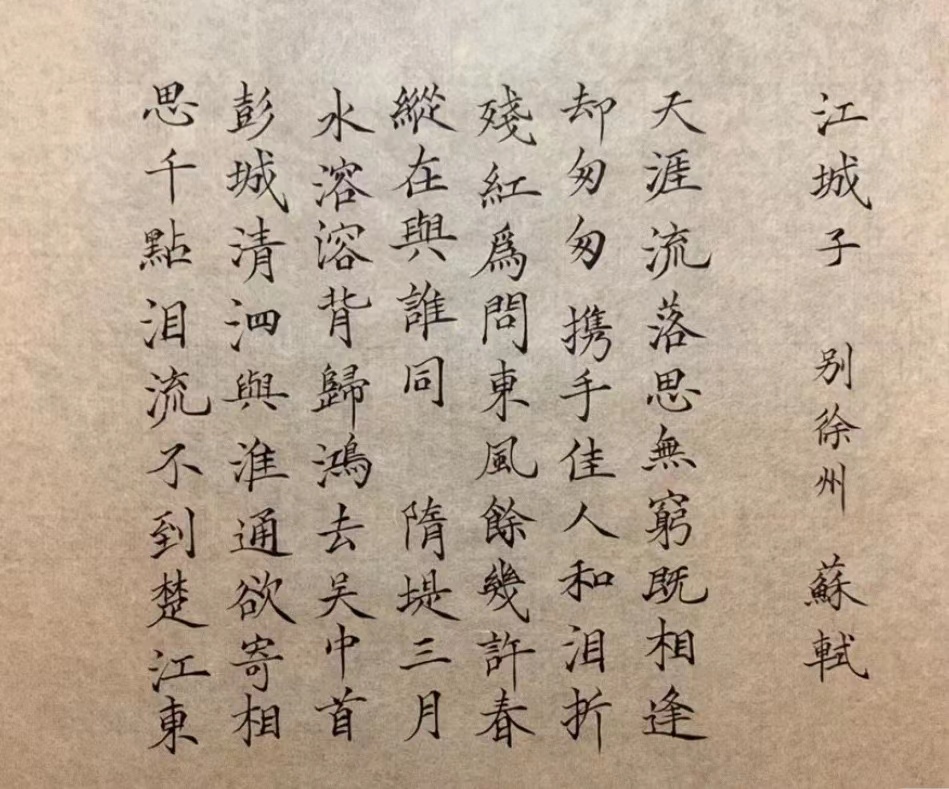 江城子 别徐州 蘇軾
天涯流落思無窮既相逢
却匆匆携手佳人和泪折
殘紅爲問東風餘幾許春
縱在與誰同 隋堤三月
水溶溶背歸鴻去吴中首
彭城清泗與淮通欲寄相
思千點泪流不到楚江東